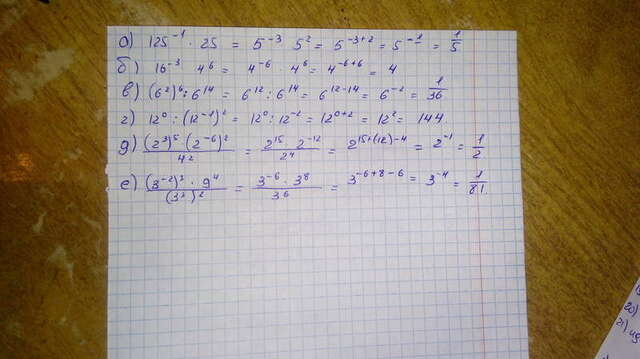 а) 125⁻¹ · 25 = 5⁻³ · 5² = 5⁻³⁺² = 5⁻¹ = 1/5
б) 16⁻³ · 4⁶ = 4⁻⁶ · 4⁶ = 4⁻⁶⁺⁶ = 4
в) (6²)⁶ : 6¹⁴ = 6¹² : 6¹⁴ = 6¹²⁻¹⁴ = 6⁻² = 1/36
г) 12⁰ : (12⁻¹)² = 12⁰ : 12⁻² = 12⁰⁺² = 12² = 144
д) (2³)⁵ · (2⁻⁶)² / 4² = 2¹⁵ · 2⁻¹² / 2⁴ = 2¹⁵⁺⁽⁻¹²⁾⁻⁴ = 2⁻¹ = 1/2
е) (3⁻²)³ · 9⁴ / (3³)² = 3⁻⁶ · 3⁸ / 3⁶ = 3⁻⁶⁺⁸⁻⁶ = 3⁻⁴ = 1/81